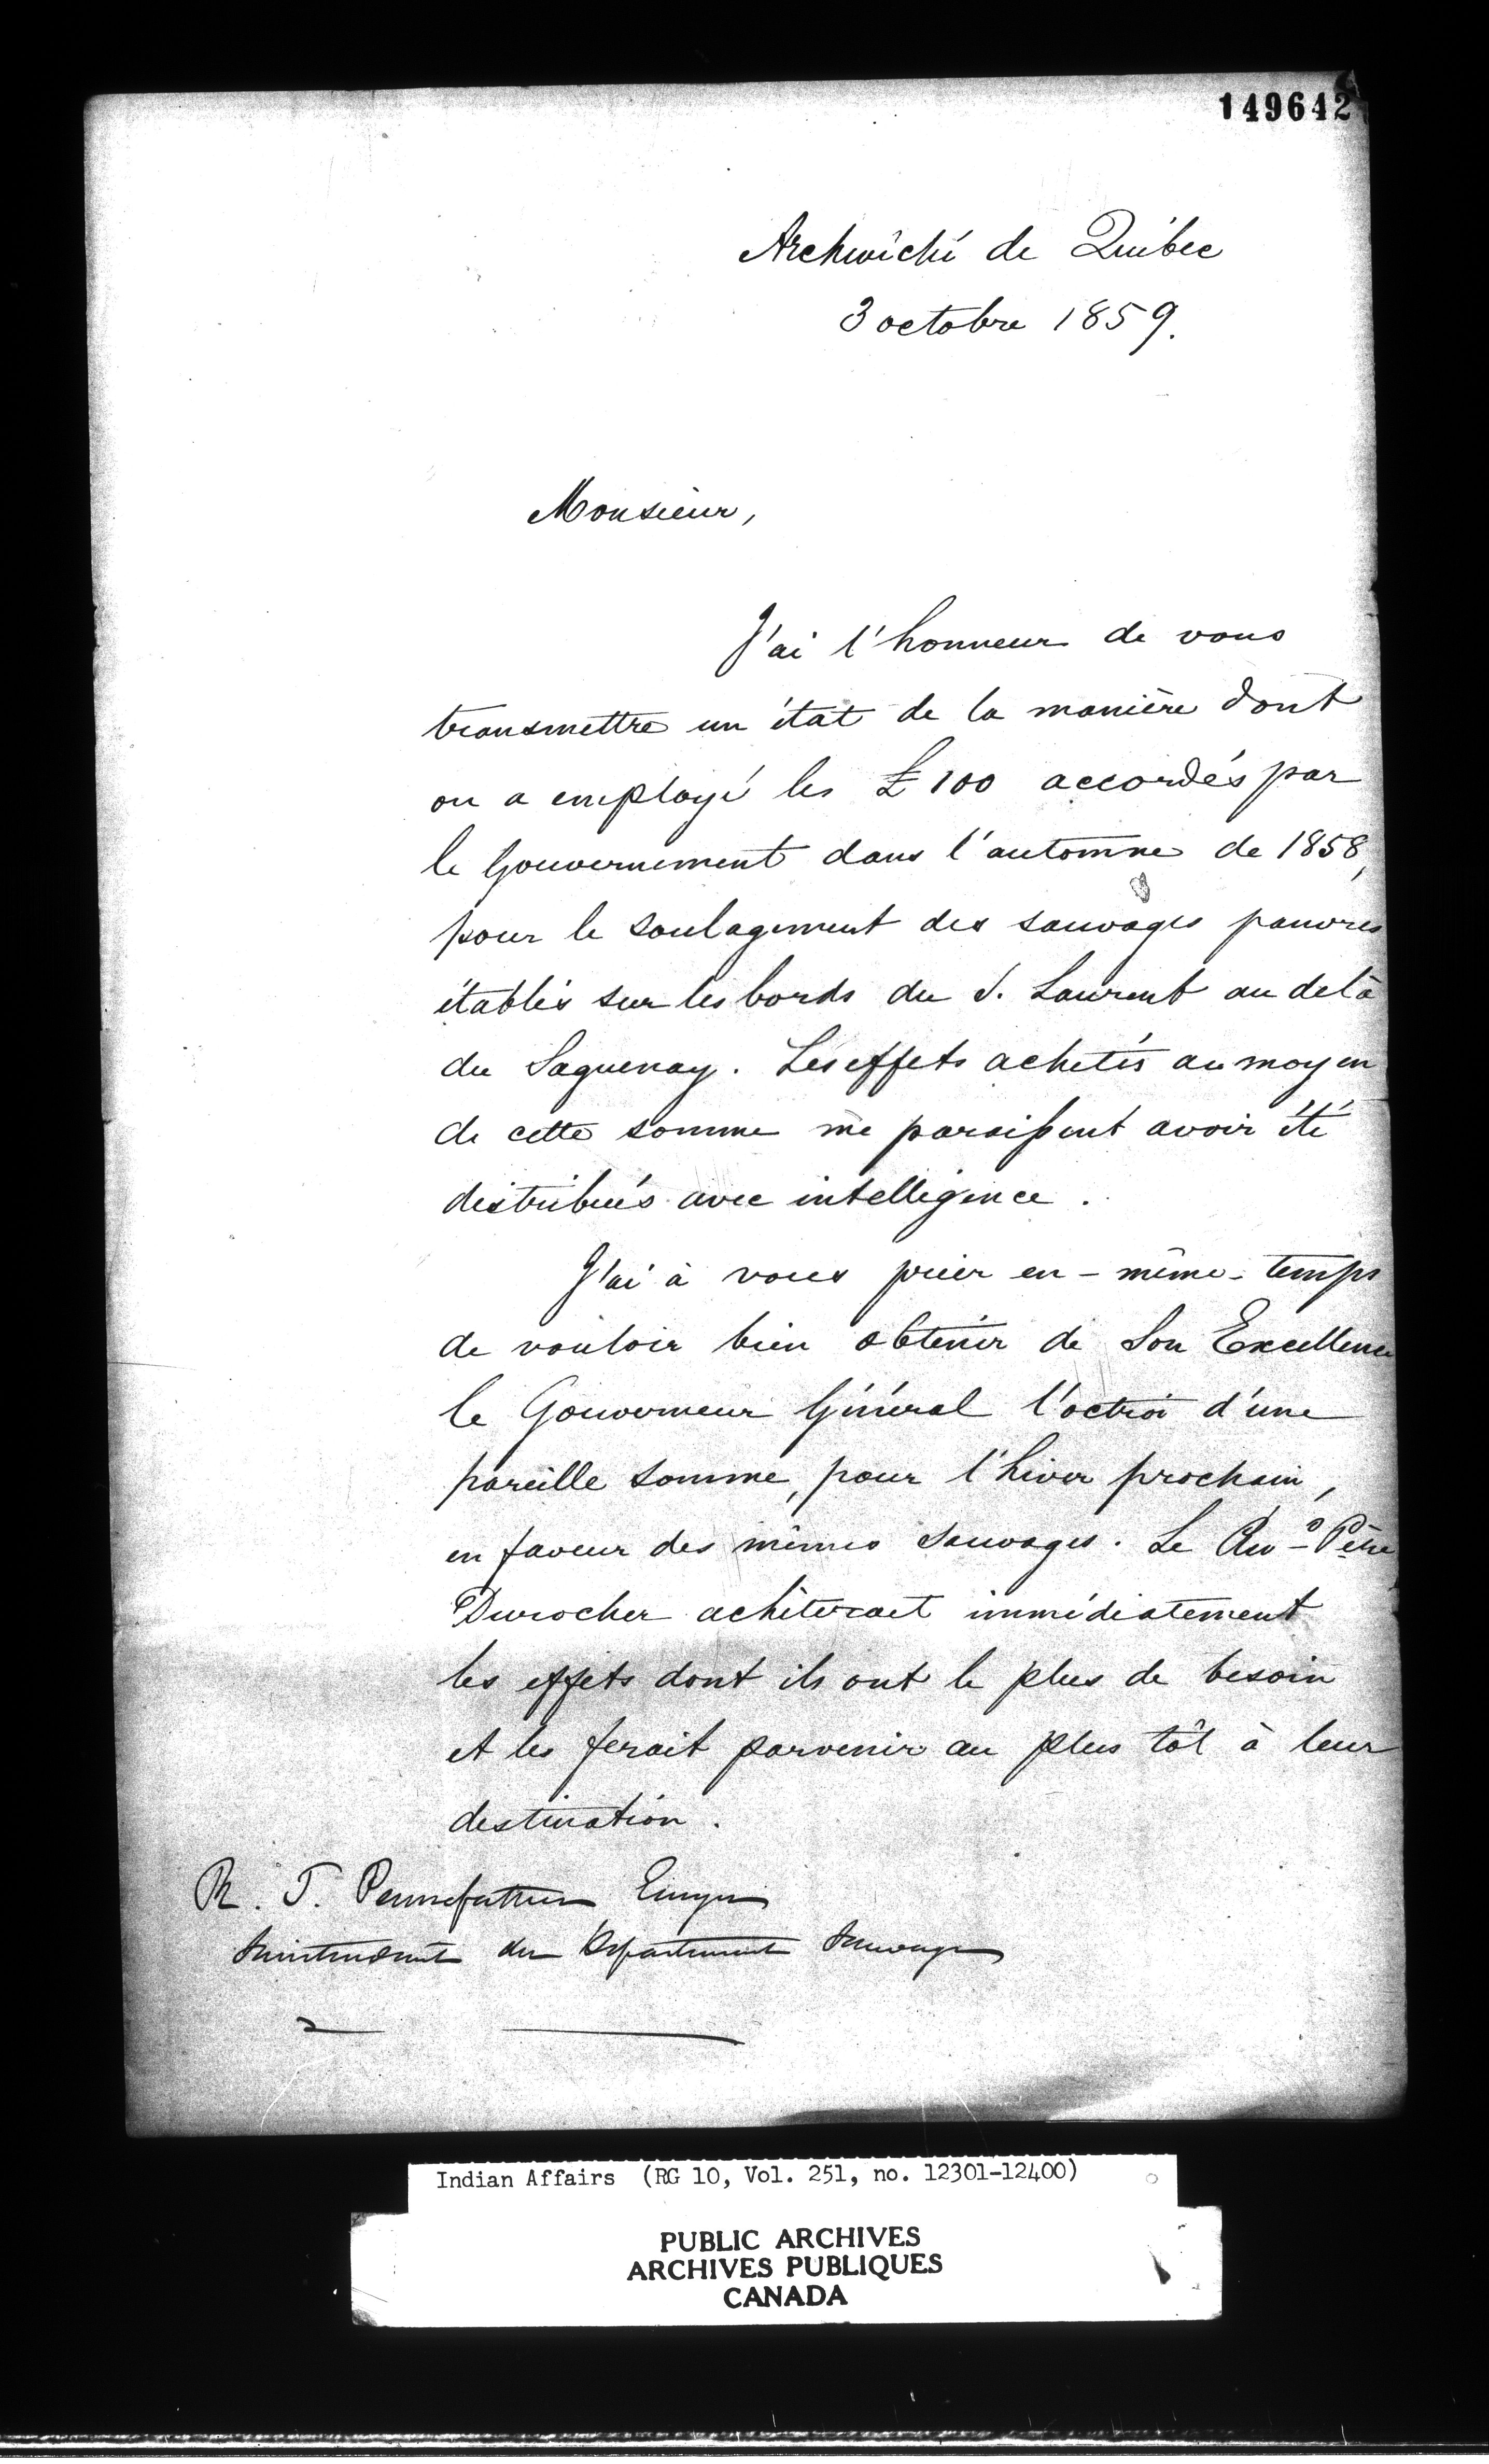 149642
Archevêché de Québec
3 octobre 1859.
Monsieur,
J'ai l'honneur de vous
transmettre un état de la manière dont
on a employé les £100 accordés par
le Gouvernement dans l'automne de 1858,
pour le soulagement des sauvages pauvres
établis sur les bords du S. Laurent au delà
du Saguenay. Les effets achetés au moyen
de cette somme me paraissent avoir été
distribués avec intelligence.
J'ai à vous prier en-même-temps
de vouloir bien obtenir de Son Excellence
le Gouverneur Général l'octroi d'une
pareille somme, pour l'hiver prochain,
en faveur des mêmes sauvages. Le Rév^d Père
Durocher achèterait immédiatement
les effets dont ils ont le plus de besoin
et les ferait parvenir au plus tôt à leur
destination.
R. T. Pennefather Ecuyer
Surintendant du Département Sauvage
Indian Affairs (RG 10, Vol. 251, no. 12301-12400)
PUBLIC ARCHIVES
ARCHIVES PUBLIQUES
CANADA